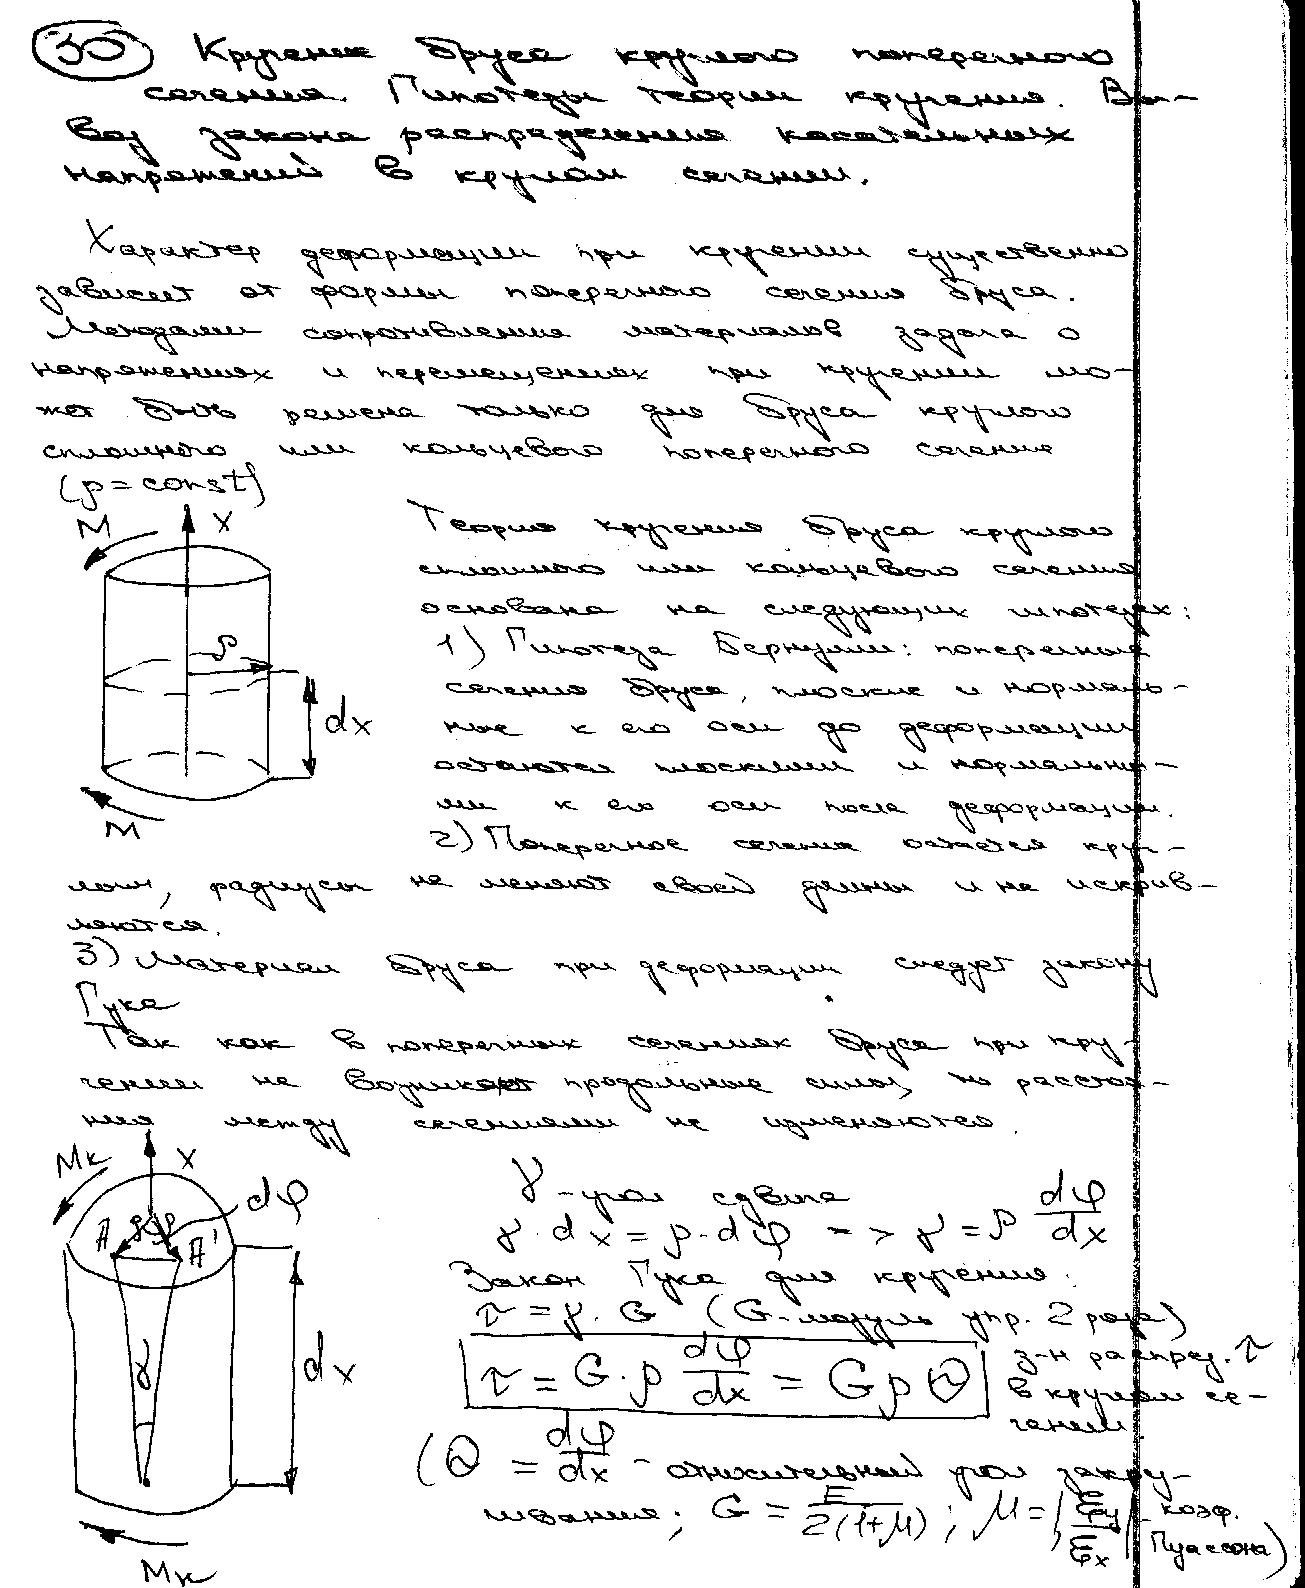 30 Кручение бруса круглого поперечного
сечения. Гипотезы теории кручения. Вы-
вод закона распределения касательных
напряжений в круглом сечении.
Характер деформации при кручении существенно
зависит от формы поперечного сечения бруса.
Методами сопротивления материалов задача о
напряжениях и перемещениях при кручении мо-
жет быть решена только для бруса круглого
сплошного или кольцевого поперечного сечения
(ρ = const)
M
x
ρ
dx
M
Теория кручения бруса круглого
сплошного или кольцевого сечения
основана на следующих гипотезах:
1) Гипотеза Бернулли: поперечные
сечения бруса, плоские и нормаль-
ные к его оси до деформации
остаются плоскими и нормальны-
ми к его оси после деформации.
2) Поперечное сечение остается круг-
лым, радиусы не меняют своей длины и не искрив-
ляются.
3) Материал бруса при деформации следует закону
Гука
Так как в поперечных сечениях бруса при кру-
чении не возникает продольные силы, то расстоя-
ния между сечениями не изменяются.
Mк
x
dφ
A
ρ
A'
γ
dx
Mк
γ - угол сдвига
γ · dx = ρ · dφ => γ = ρ dφ/dx
Закон Гука для кручения:
τ = γ · G (G - модуль упр. 2 рода)
τ = G · ρ dφ/dx = G ρ Θ
з-н распред. τ
в круглом се-
чении.
(Θ = dφ/dx - относительный угол закру-
чивания; G = E/2(1+μ); μ = |εy/εx| - коэф.
Пуассона)